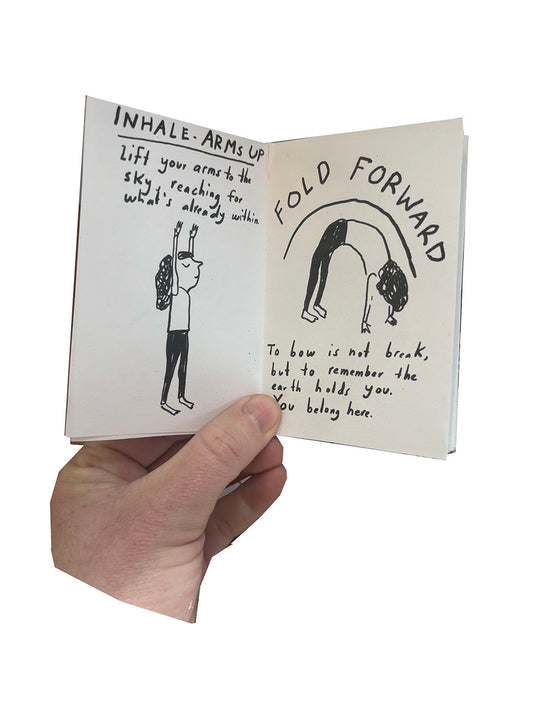 INHALE - ARMS UP
Lift your arms to the
sky, reaching for
what's already within.
FOLD FORWARD
To bow is not break,
but to remember the
earth holds you.
You belong here.